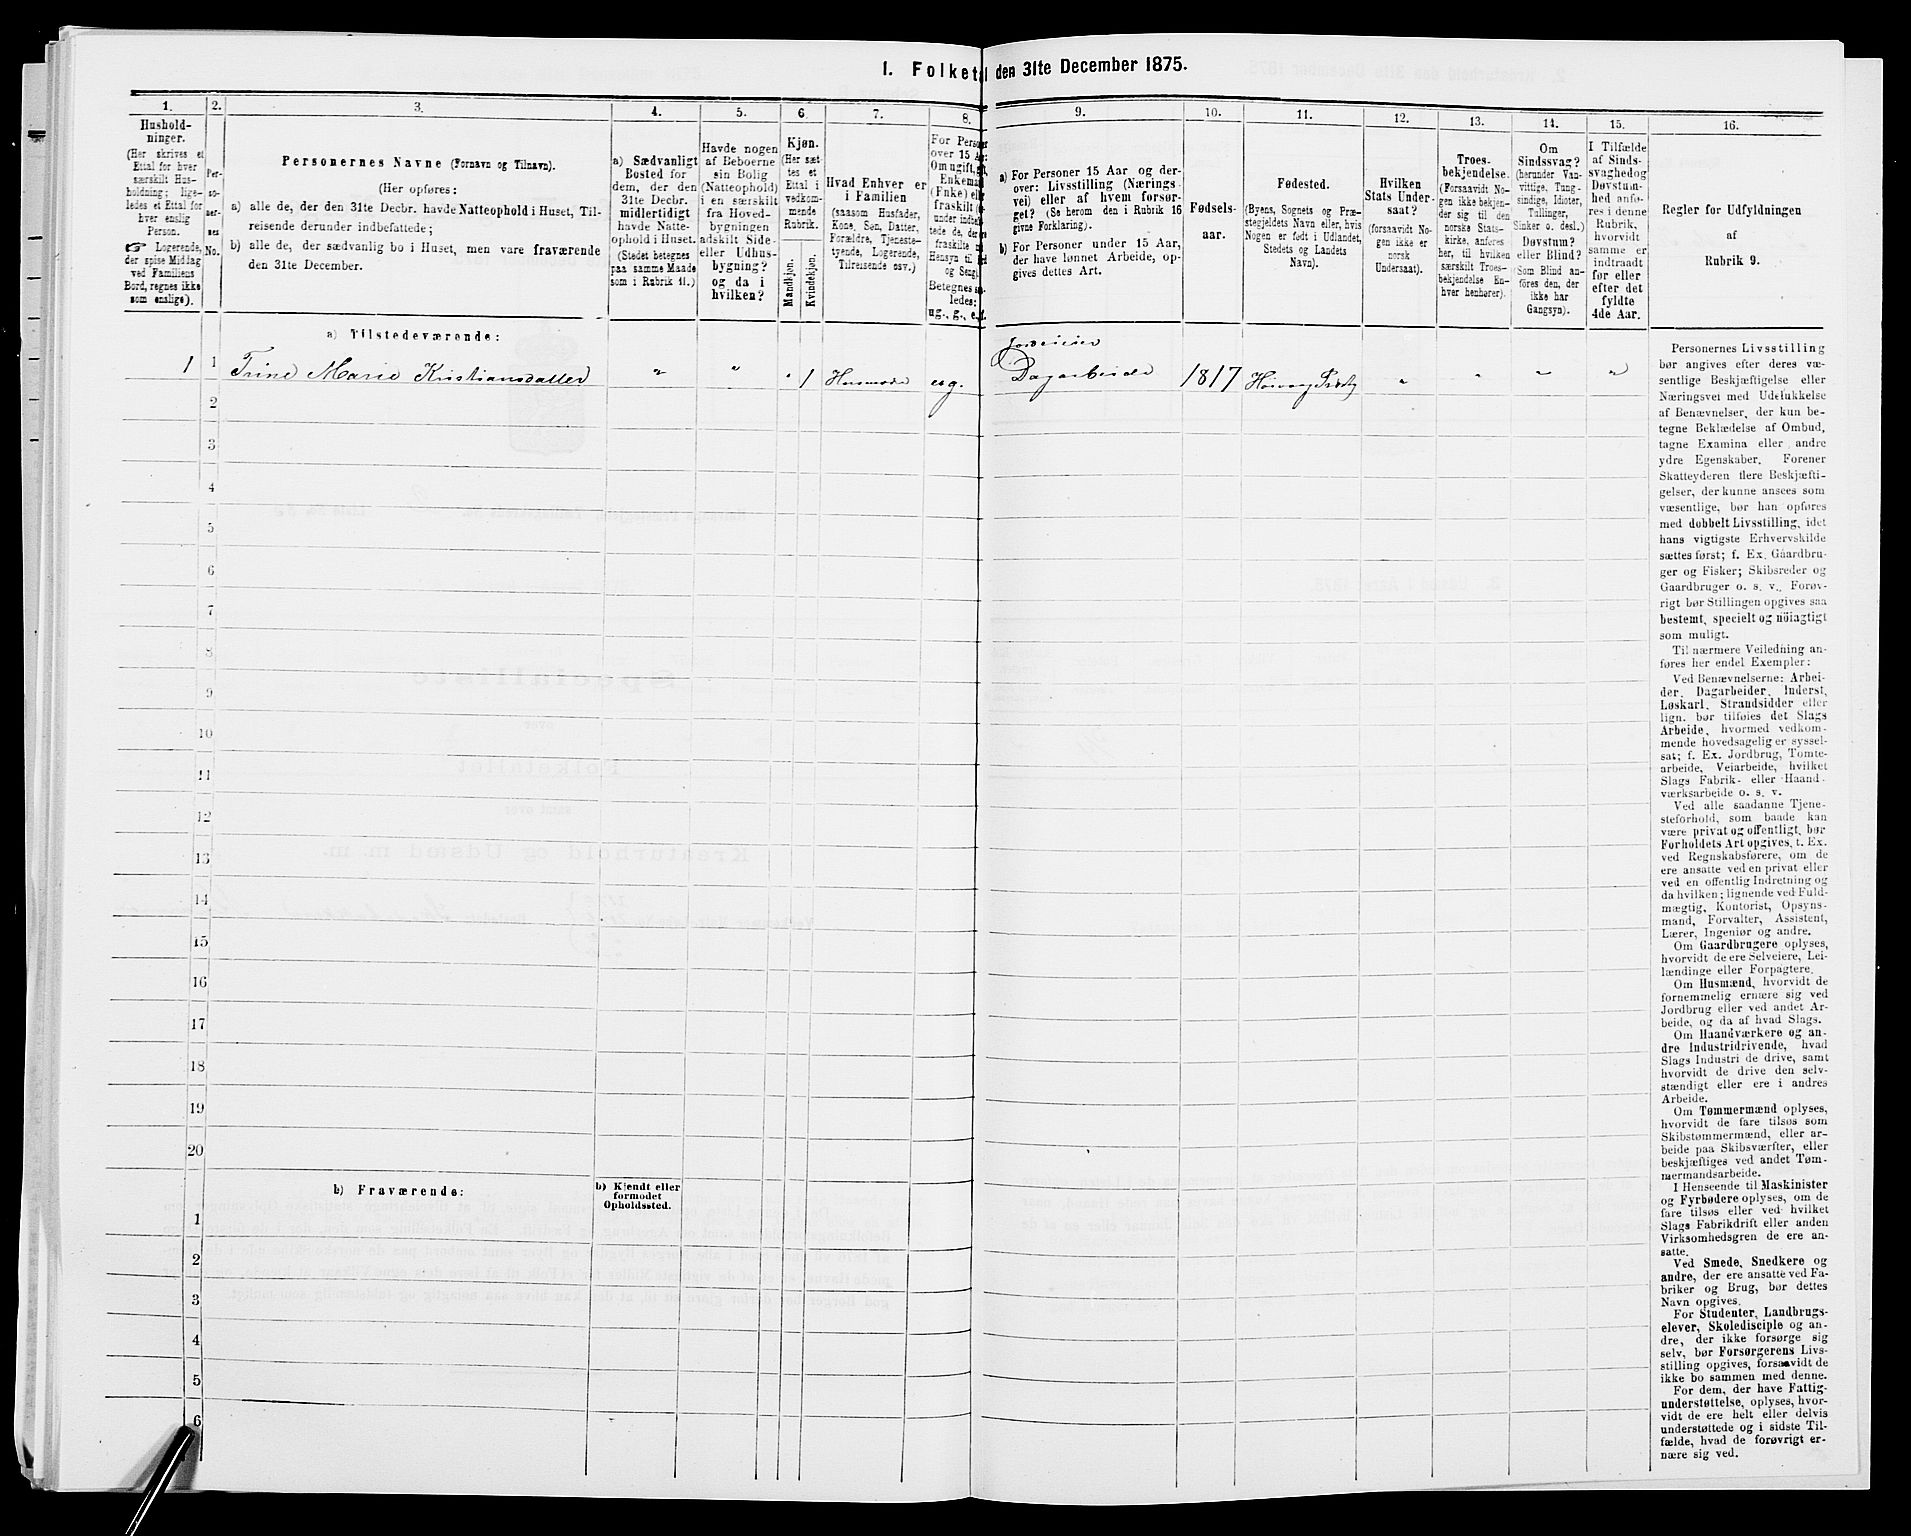 1. Folketal den 31te December 1875.
1.
2.
3.
4.
5.
6.
7.
8.
9.
10.
11.
12.
13.
14.
15.
16.
Hushold-
ninger.
(Her skrives et
Ettal for hver
særskilt Hus-
holdning; lige-
ledes et Ettal for
hver enslig
Person.
☞ Logerende,
der spise Middag
ved Familiens
Bord, regnes ikke
som enslige).
Per-
so-
ner-
nes
No.
Personernes Navne (Fornavn og Tilnavn).
(Her opføres:
a) alle de, der den 31te Decbr. havde Natteophold i Huset, Til-
reisende derunder indbefattede;
b) alle de, der sædvanlig bo i Huset, men vare fraværende
den 31te December.
a) Sædvanligt
Bosted for
dem, der den
31te Decbr.
midlertidigt
havde Natte-
ophold i Huset.
(Stedet betegnes
paa samme Maade
som i Rubrik 11.)
Havde nogen
af Beboerne
sin Bolig
(Natteophold)
i en særskilt
fra Hoved-
bygningen
adskilt Side-
eller Udhus-
bygning?
og da i
hvilken?
Kjøn.
(Her sæt-
tes et
Ettal i
vedkom-
mende
Rubrik.
Mandkjøn.
Kvindekjøn.
Hvad Enhver er
i Familien
(saasom Husfader,
Kone, Søn, Datter,
Forældre, Tjeneste-
tyende, Logerende,
Tilreisende osv.)
For Person
over 15 Aar:
Om ugift, gift,
Enkema
(Enke) ell
fraskilt (
under indbe
tede de, der
fraskilte
Hensyn til
og Seng).
Betegnes sa-
ledes:
ug., g., e., f.
a) For Personer 15 Aar og der-
over: Livsstilling (Nærings-
vei) eller af hvem forsør-
get? (Se herom den i Rubrik 16
givne Forklaring).
b) For Personer under 15 Aar,
der have lønnet Arbeide, op-
gives dettes Art.
Fødsels-
aar.
Fødested.
(Byens, Sognets og Præ-
stegjeldets Navn eller, hvis
Nogen er født i Udlandet,
Stedets og Landets
Navn).
Hvilken
Stats Under-
saat?
(forsaavidt No-
gen ikke er
norsk
Undersaat).
Troes-
bekjendelse.
(Forsaavidt No-
gen ikke bekjen-
der sig til den
norske Stats-
kirke, anføres
her, til hvilken
særskilt Troes-
bekjendelse En-
hver henhører).
Om
Sindssvag?
(herunder Van-
vittige, Tung-
sindige, Idioter,
Tullinger,
Sinker o. desl.)
Døvstum?
eller Blind?
(Som Blind an-
føres den, der
ikke har
Gangsyn).
I Tilfælde
af Sinds-
svaghedog
Døvstum-
hed anfø-
res i denne
Rubrik,
hvorvidt
samme er
indtraadt
før eller
efter det
fyldte
4de Aar.
Regler for Udfyldningen
af
Rubrik 9.
a) Tilstedeværende:
1 1 Trine Marie Kristiansdatter " " " 1 Husmoder e g. Jordeier Dagarbeider 1817 " " " "
2
3
4
5
6
7
8
9
10
11
12
13
14
15
16
17
18
19
20
b) Fraværende:
b) Kjendt eller
formodet
Opholdssted.
1
2
3
4
5
6
Personernes Livsstilling
bør angives efter deres væ-
sentlige Beskjæftigelse eller
Næringsvei med Udelukkelse
af Benævnelser, der kun be-
tegne Beklædelse af Ombud,
tagne Examina eller andre
ydre Egenskaber. Forener
Skatteyderen flere Beskjæfti-
gelser, der kunne ansees som
væsentlige, bør han opføres
med dobbelt Livsstilling, idet
hans vigtigste Erhvervskilde
sættes først; f. Ex. Gaardbru-
ger og Fisker; Skibsreder og
Gaardbruger o. s. v. Forøv-
rigt bør Stillingen opgives saa
bestemt, specielt og nöiagtigt
som muligt.
Til nærmere Veiledning an-
føres her endel Exempler:
Ved Benævnelserne: Arbei-
der, Dagarbeider, Inderst,
Løskarl, Strandsidder eller
lign. bør tilføies det Slags
Arbeide, hvormed vedkom-
mende hovedsagelig er syssel-
sat; f. Ex. Jordbrug, Tomte-
arbeide, Veiarbeide, hvilket
Slags Fabrik- eller Haand-
værksarbeide o. s. v.
Ved alle saadanne Tjene-
steforhold, som baade kan
være privat og offentligt, bør
Forholdets Art opgives, f. Ex.
ved Regnskabsførere, om de
ere ansatte ved en privat eller
ved en offentlig Indretning og
da hvilken; lignende ved Fuld-
mægtig, Kontorist, Opsyns-
mand, Forvalter, Assistent,
Lærer, Ingeniør og andre.
Om Gaardbrugere oplyses,
hvorvidt de ere Selveiere, Lei-
lændinge eller Forpagtere.
Om Husmænd, hvorvidt de
fornemmelig ernære sig ved
Jordbrug eller ved andet Ar-
beide, og da af hvad Slags.
Om Haandværkere og an-
dre Industridrivende, hvad
Slags Industri de drive, samt
hvorvidt de drive den selv-
stændigt eller ere i andres
Arbeide.
Om Tømmermænd oplyses,
hvorvidt de fare tilsøs som
Skibstømmermænd, eller ar-
beide paa Skibsværfter, eller
beskjæftiges ved andet Tøm-
mermandsarbeide.
I Henseende til Maskinister
og Fyrbødere oplyses, om de
fare tilsøs eller ved hvilket
Slags Fabrikdrift eller anden
Virksomhedsgren de ere an-
satte.
Ved Smede, Snedkere og
andre, der ere ansatte ved Fa-
briker og Brug, bør dettes
Navn opgives.
For Studenter, Landbrugs-
elever, Skoledisciple og an-
dre, der ikke forsørge sig
selv, bør Forsørgerens Livs-
stilling opgives, forsaavidt de
ikke bo sammen med denne.
For dem, der have Fattig-
understøttelse, oplyses, hvor-
vidt de ere helt eller delvis
understøttede og i sidste Til-
fælde, hvad de forøvrigt er-
nære sig ved.